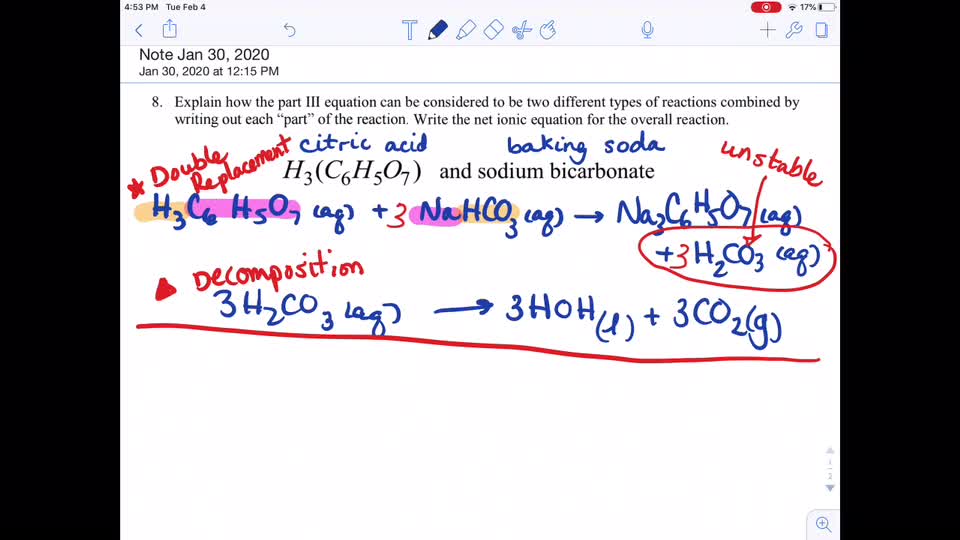 4:53 PM Tue Feb 4
17%
T
Note Jan 30, 2020
Jan 30, 2020 at 12:15 PM
8. Explain how the part III equation can be considered to be two different types of reactions combined by
writing out each “part” of the reaction. Write the net ionic equation for the overall reaction.
* Double Replacement
citric acid baking soda unstable
H₃(C₆H₅O₇) and sodium bicarbonate
H₃C₆H₅O₇ (aq) + 3 NaHCO₃ (aq) → Na₃C₆H₅O₇ (aq)
+ 3 H₂CO₃ (aq)
▲ Decomposition
3H₂CO₃ (aq) → 3HOH(l) + 3CO₂(g)
1
2